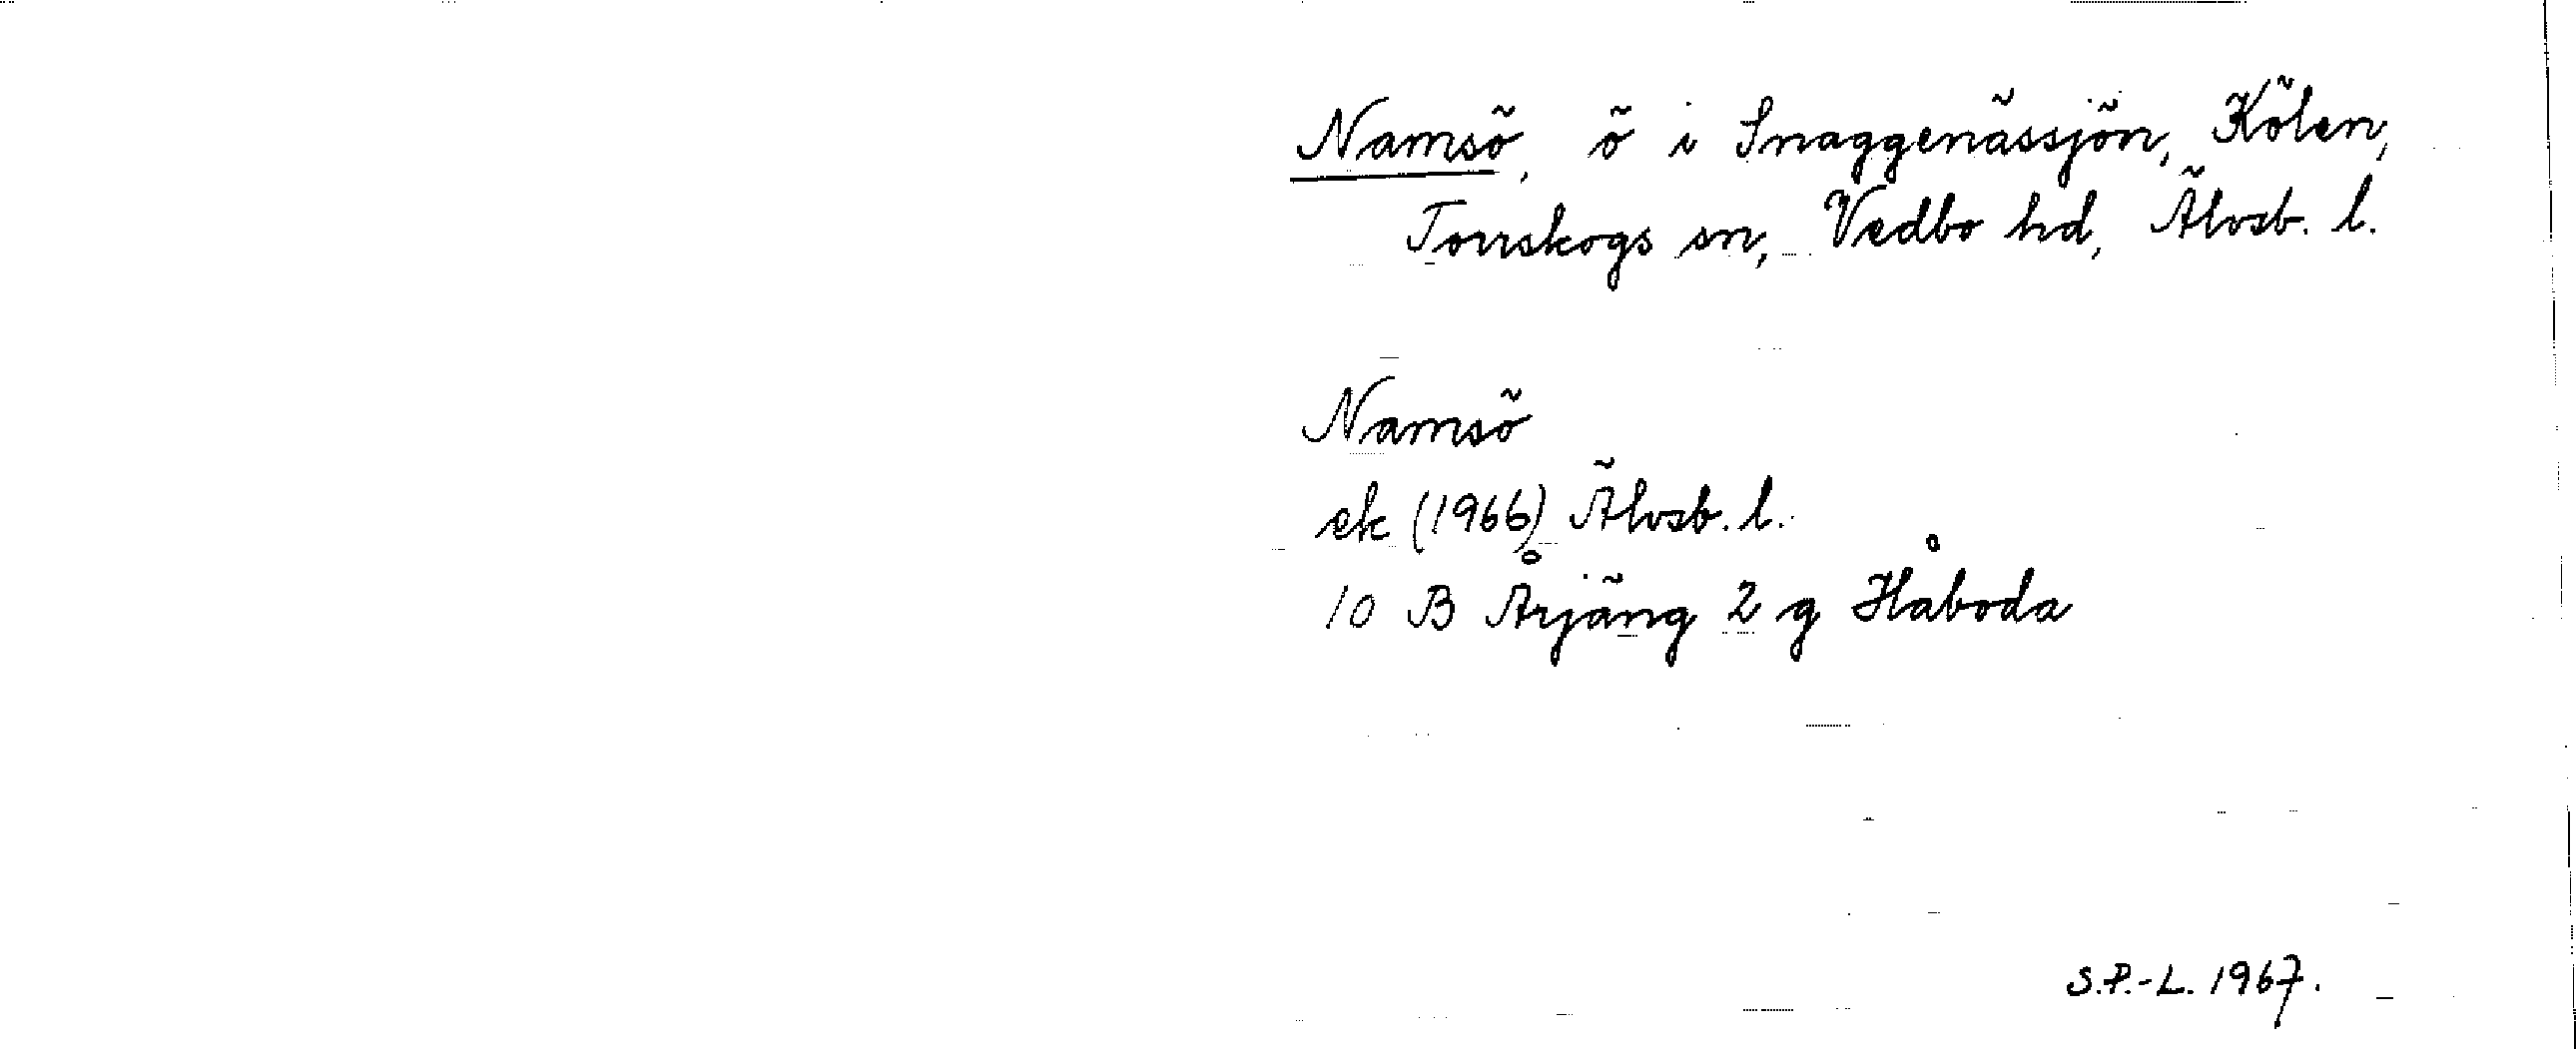 Namsö, ö i Snaggenässjön, Kölen,
Torrskogs sn, Vedbo hd, Älvsb. l.
Namsö
ek (1966) Älvsb. l.
10 B Årjäng 2 g Håboda
S.P.-L. 1967.